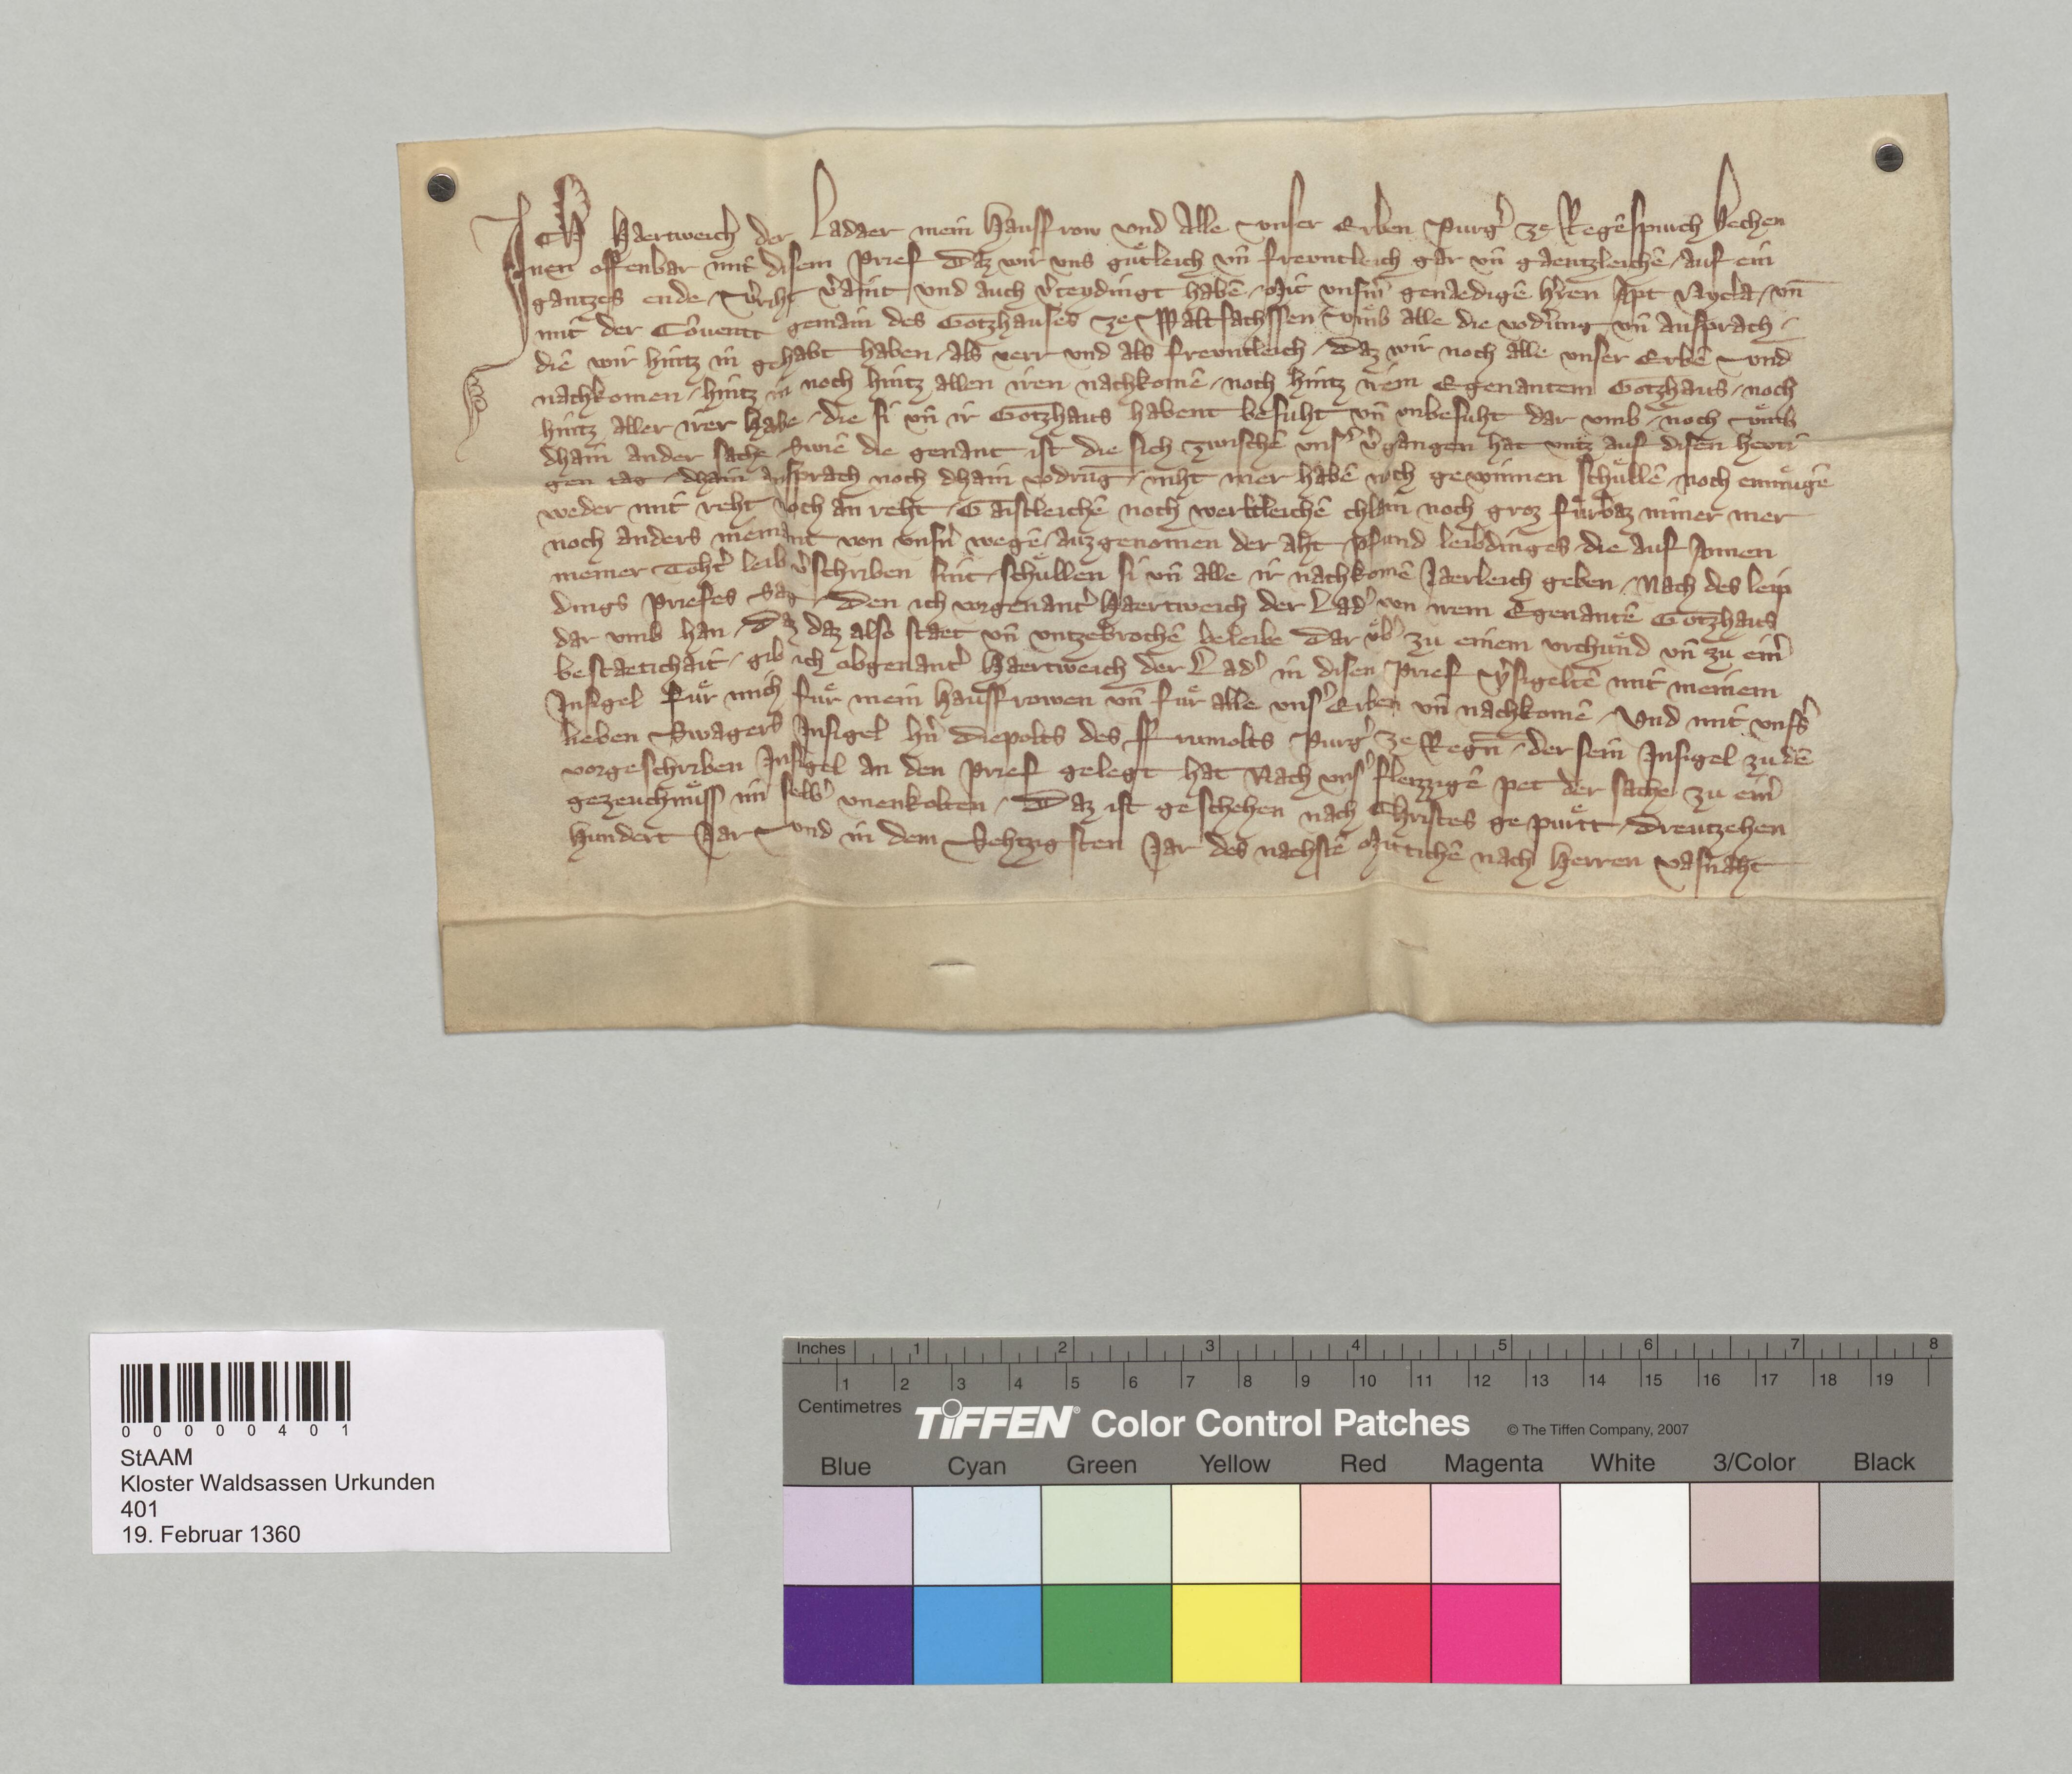 ICH Haertweich der Ladaer mein Hausfrow vnd Alle vnser Erben Purg̓ ze Regēspurch bechen
nen offenbar mit disem Prief Daz wir vns guͤtleich vn̄ frevntleich gar vn̄ gaentzleichē auf ein
gantzes ende v̓riht v̓aint vnd auch v̓teydingt habē mit vnsm̄ genaedigē h̓ren Apt vn̄
mit der Cōuent gemain des Gotzhauses ze Waltsachssen vmb alle die vodr̓ung vn̄ ansprach
die wir hintz in gehabt haben als verr vnd als frevntleich daz wir noch alle vnser Erbē vnd
nachkomen hintz in noch hintz allen iren nachkomē noch hintz irem Egenantem Gotzhaus noch
hintz aller irer habe die si vn̄ ir Gotzhaus habent besuht vn̄ vnbesuht dar vmb noch vmb
dhain ander sache Swie die genant ist die sich zwischē vns̓ v̓gangen hat vntz auf disen hevti
gen tag dhain ansprach noch dhain vodrūg niht mer habē noch gewinnen schuͤllē noch enmuͤgē
weder mit reht noch an reht Gaistleichē noch werltleichē chlain noch groz fuͤrbaz nimer mer
noch anders niemant von vnsr̓n wegē auzgenomen der aht pfund leibdinges die auf Annen
meiner Toht̓ leib v̓schriben sint schuͤllen si vn̄ alle ir nachkomē Jaerleich geben Nach des leip
dings Priefes Sag Den ich vorgenant̓ Haertweich der Lad̓ von irem Egenantē Gotzhaus
dar vmb han Daz daz also staet vn̄ vntzebrochē beleibe Dar vͤb̓ zu einem vrchuͤnd vn̄ zu ein̓
bestaetichait gib ich obgenant̓ Haertweich der Lad̓ in disen Prief v̓sigeltē mit meinem
Insigel fuͤr mich fuͤr mein hausfrowen vn̄ fuͤr alle vns̓ Erben vn̄ nachkomē Vnd mit vnss̓
lieben Swagers Insigel h̓n Diepolts des Frumolts Purg̓ ze Regn̄ der sein Insigel zu dē
vorgeschriben Insigel an den Prief gelegt hat Nach vns̓ fleizzigē pet der sache zu ein̓
gezeuchnuͤss im selb̓ vnenkolten Daz ist geschehen nach Christes gepuͤrtt Dreutzehen
hundert Jar vnd in dem Sehtzigsten Jar des nachstē Mittichē nach Herren vasnaht
0 0 0 0 0 4 0 1
StAAM
Kloster Waldsassen Urkunden
401
19. Februar 1360
Inches 1 2 3 4 5 6 7 8
1 2 3 4 5 6 7 8 9 10 11 12 13 14 15 16 17 18 19
Centimetres
TIFFEN® Color Control Patches © The Tiffen Company, 2007
Blue Cyan Green Yellow Red Magenta White 3/Color Black